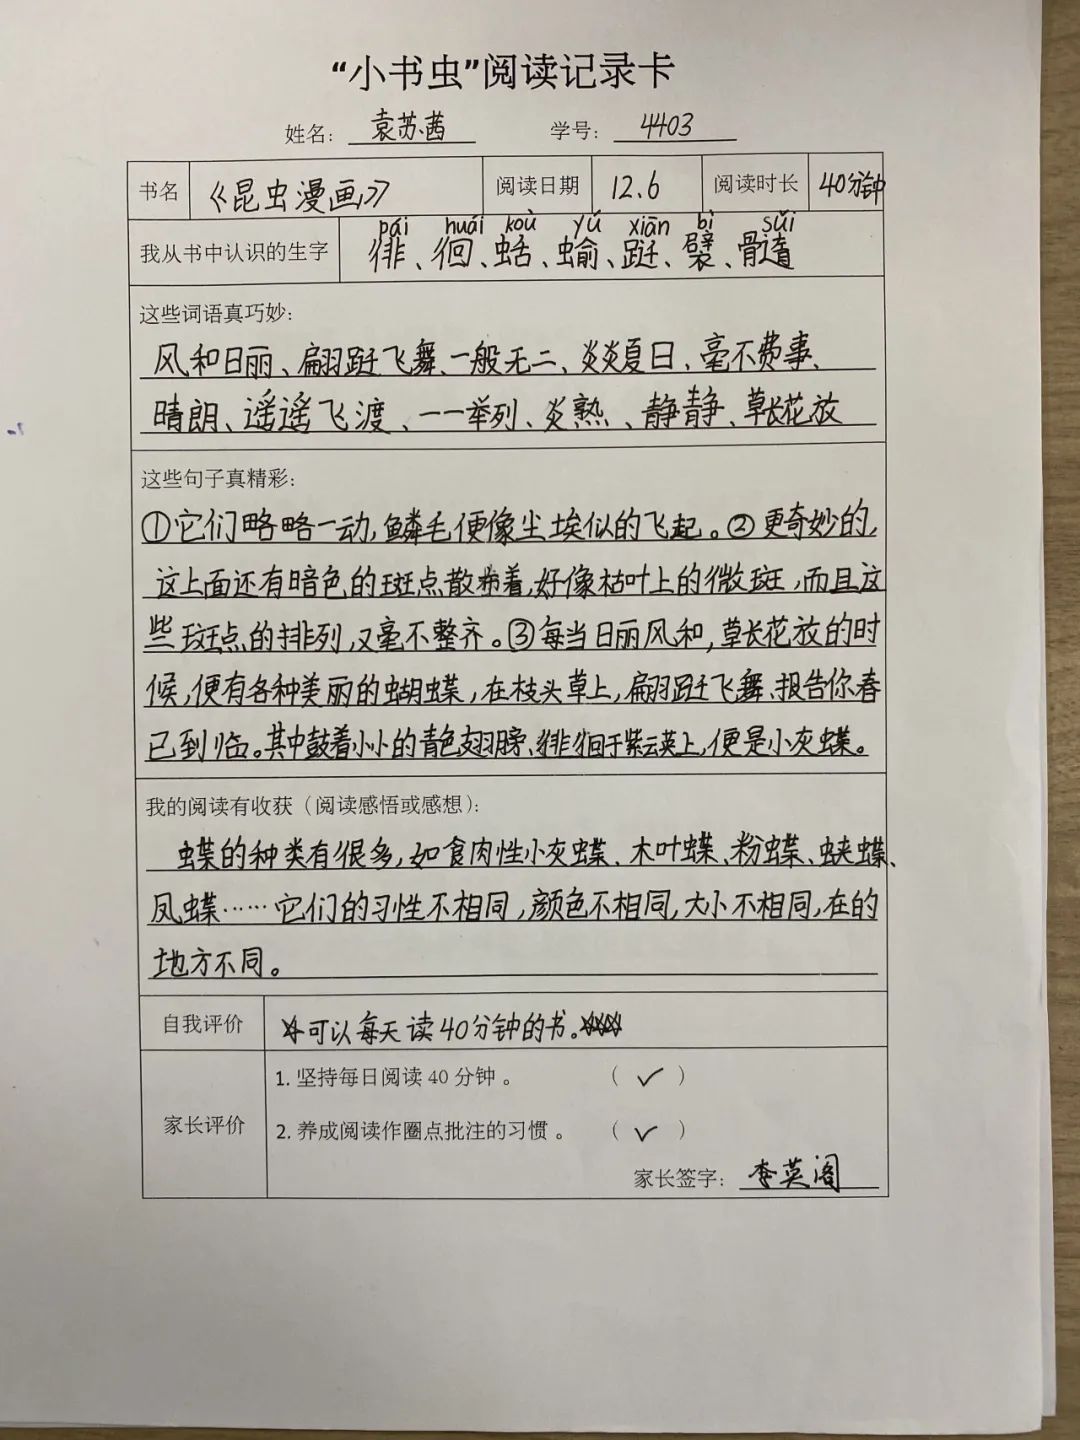 “小书虫”阅读记录卡
姓名: 袁苏茜 学号: 4403
书名 《昆虫漫画》 阅读日期 12.6 阅读时长 40分钟
pái huái koù yú xiān bì suǐ
我从书中认识的生字 徘、徊、蛞、蝓、跹、襞、髓
这些词语真巧妙:
风和日丽、翩跹飞舞、一般无二、炎炎夏日、毫不费事、
晴朗、遥遥飞渡、一一举列、炎熟、静静、草长花放
这些句子真精彩:
①它们略略一动,鳞毛便像尘埃似的飞起。②更奇妙的,
这上面还有暗色的斑点散布着,好像枯叶上的微斑,而且这
些斑点的排列,又毫不整齐。③每当日丽风和,草长花放的时
候,便有各种美丽的蝴蝶,在枝头草上,翩跹飞舞、报告你春
已到临。其中鼓着小小的青色翅膀、徘徊于紫云英上,便是小灰蝶。
我的阅读有收获（阅读感悟或感想）:
蝶的种类有很多,如食肉性小灰蝶、木叶蝶、粉蝶、蛱蝶、
凤蝶……它们的习性不相同,颜色不相同,大小不相同,在的
地方不同。
自我评价 可以每天读40分钟的书。
1. 坚持每日阅读 40 分钟 。 （ ✓ ）
家长评价
2. 养成阅读作圈点批注的习惯 。 （ ✓ ）
家长签字: 李英阁